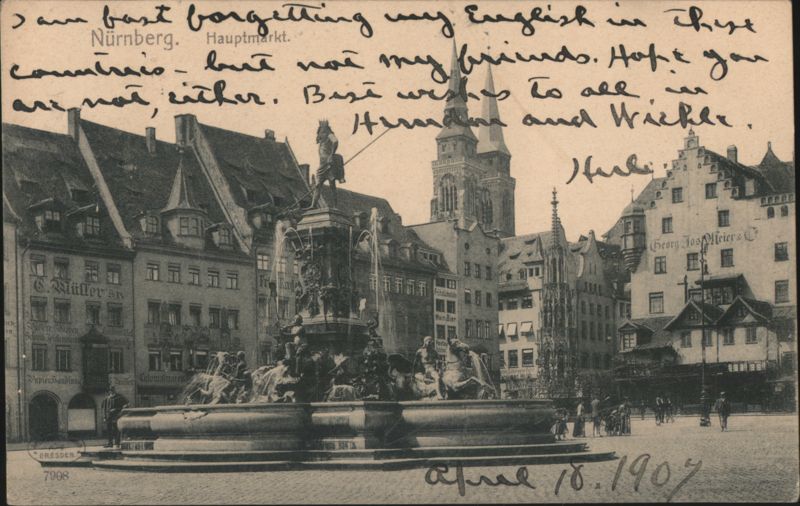 I am fast forgetting my English in these
Nürnberg. Hauptmarkt.
countries - but not my friends. Hope you
are not, either. Best wishes to all, in
Herndon and Wiehle.
Georg Jos. Meier & C
C. Müller
DRESDEN
7908
April 18. 1907